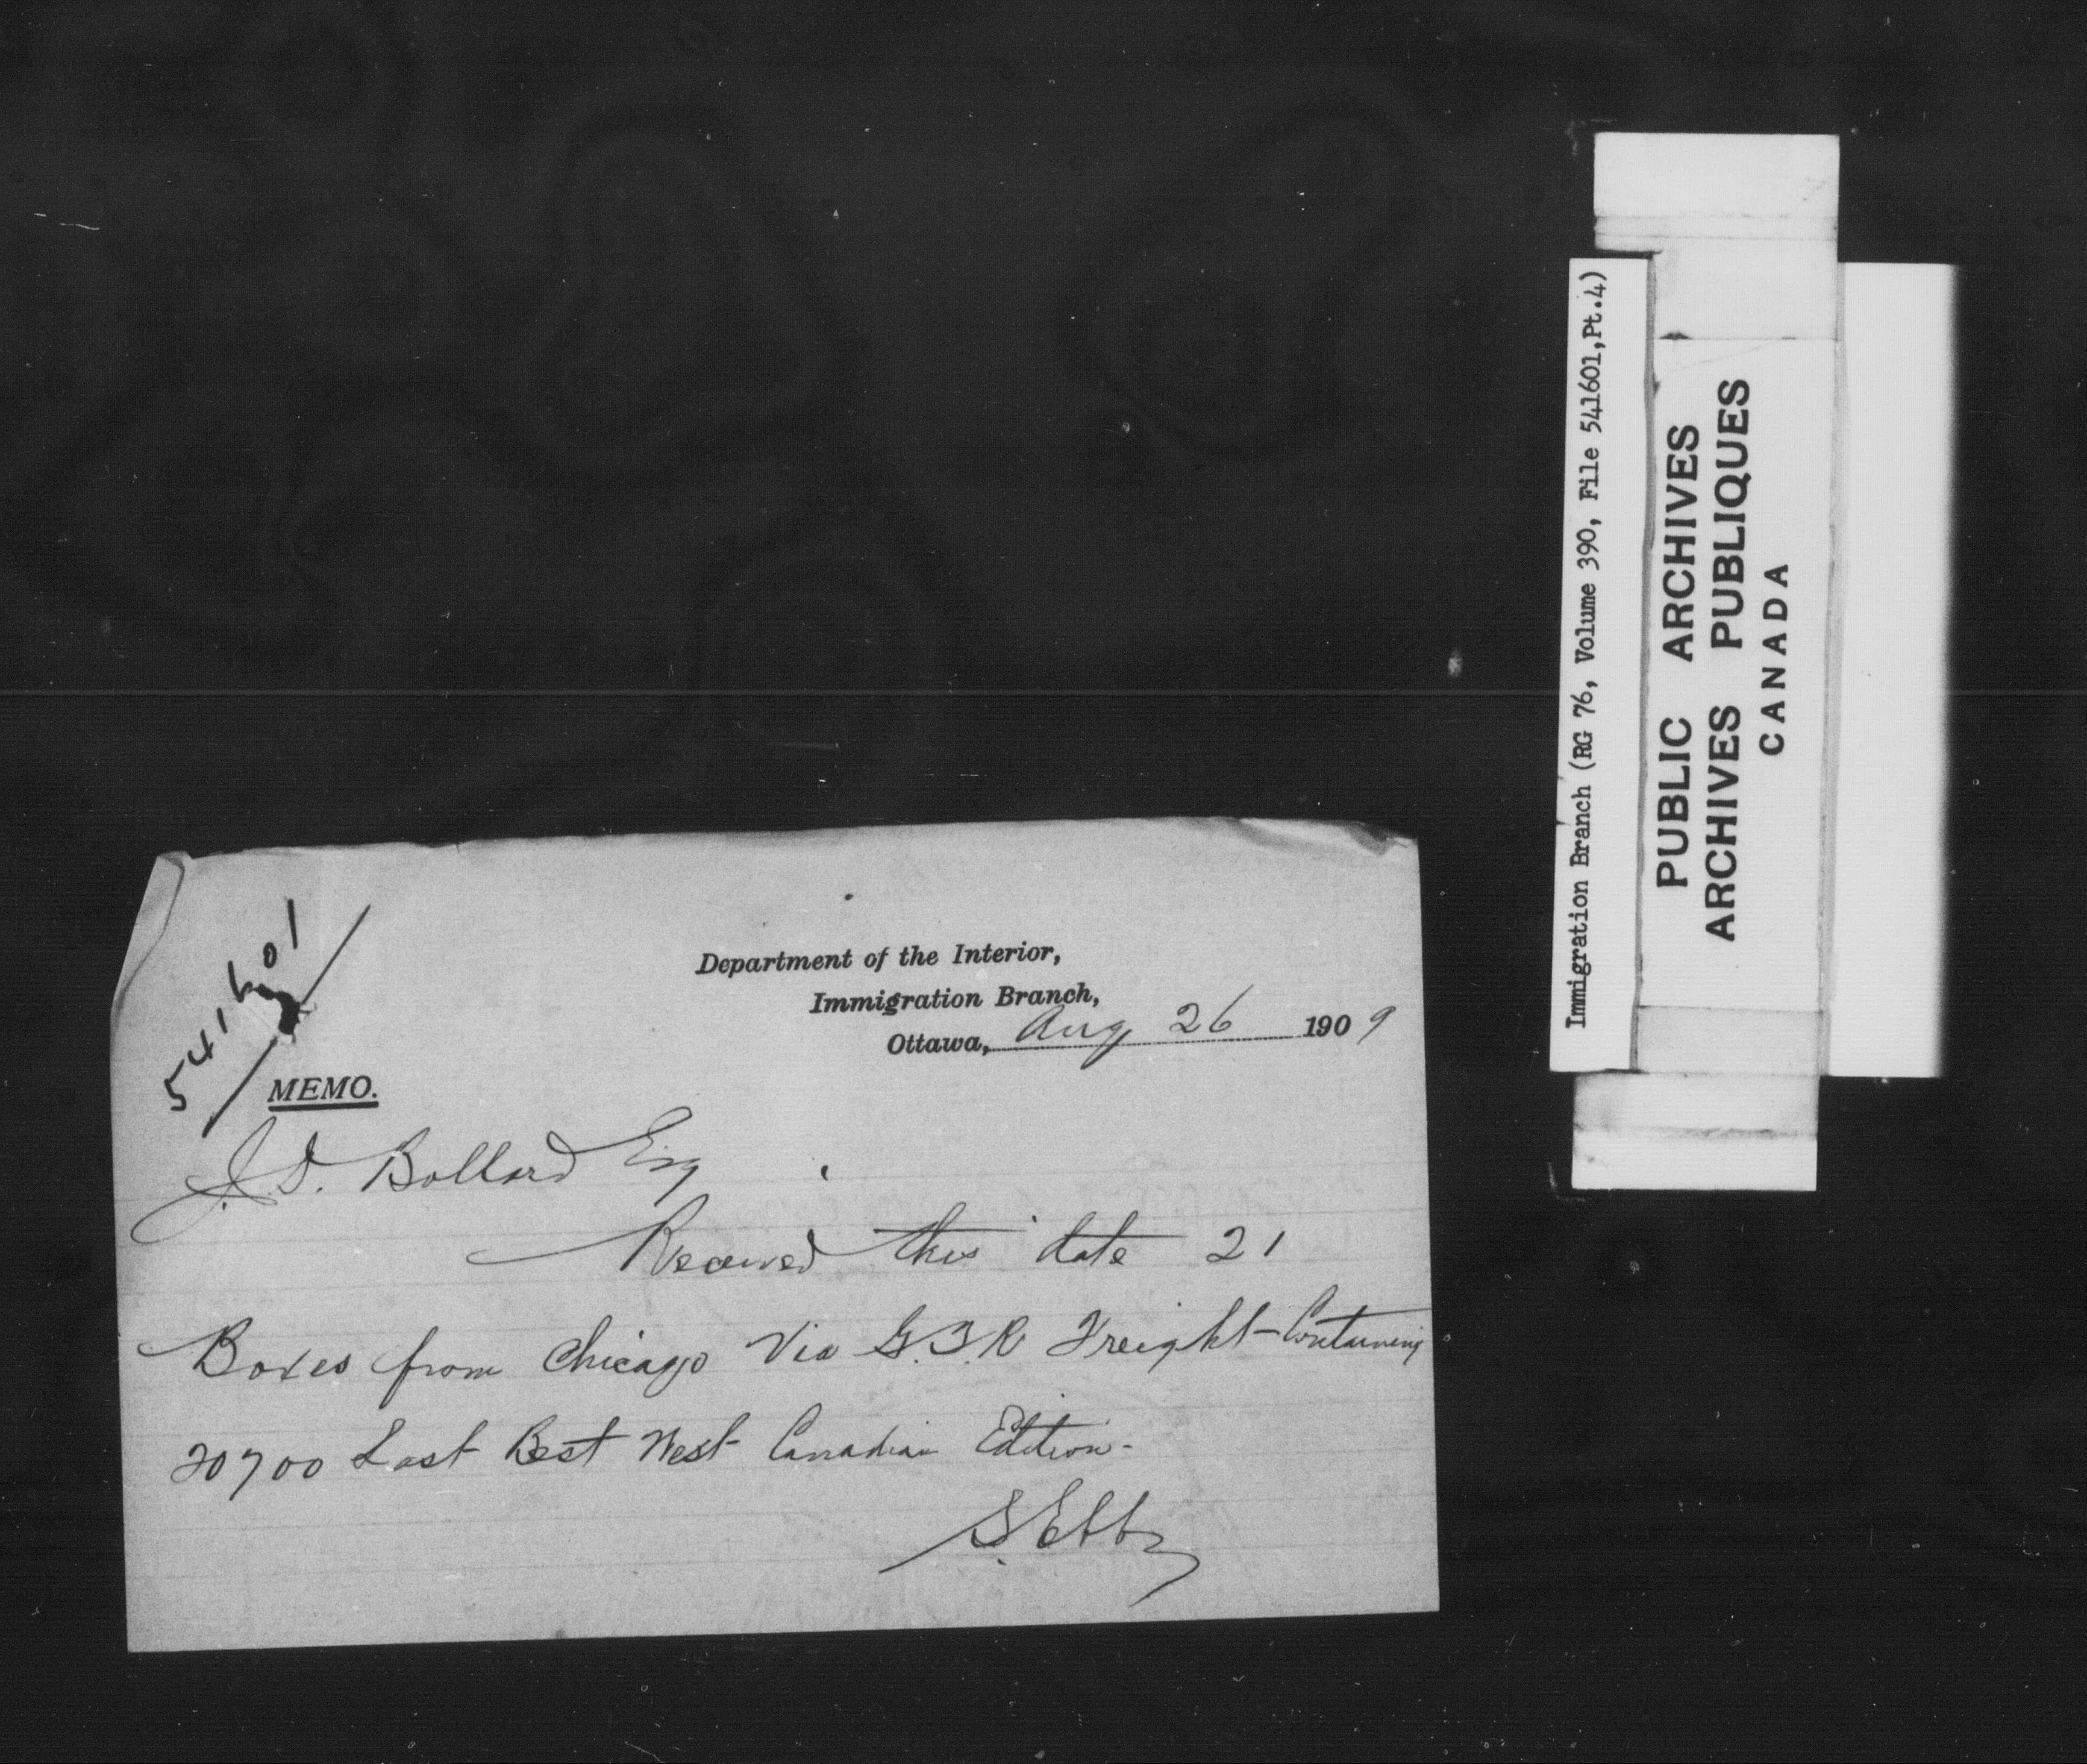 541601
Department of the Interior,
Immigration Branch,
Ottawa, Aug 26 1909
MEMO.
J. D. Bollard Esq
Received this date 21
Boxes from Chicago Via G.T.R Freight-Containing
20700 Last Best West Canadian Edition-
S. Ebby
Immigration Branch (RG 76, Volume 390, File 541601,Pt.4)
PUBLIC ARCHIVES
ARCHIVES PUBLIQUES
CANADA